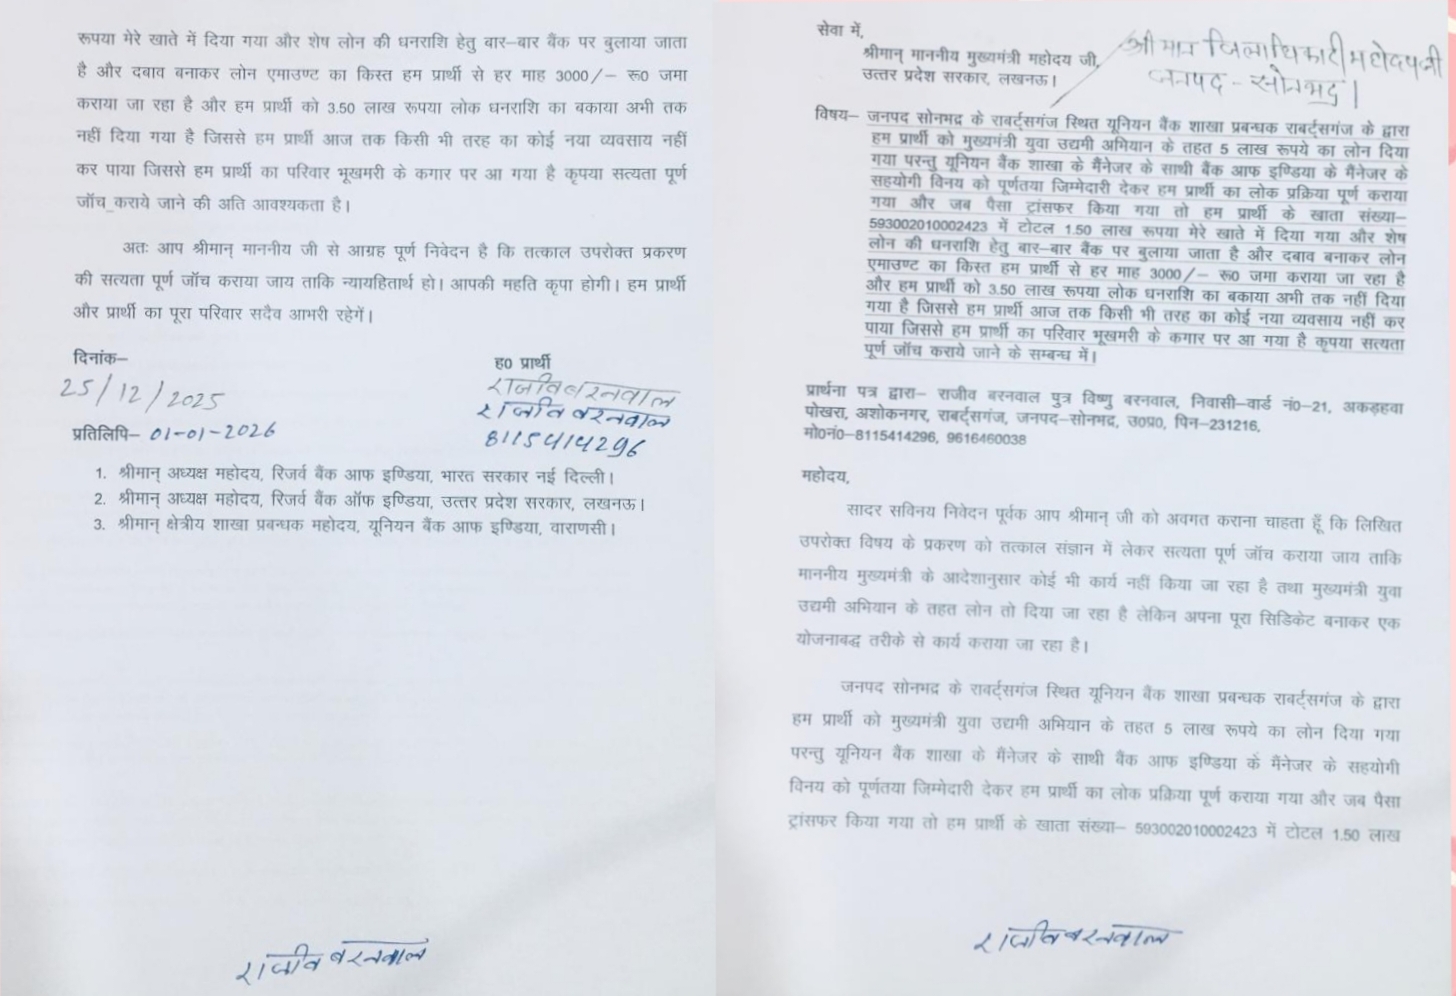 सेवा में,
श्रीमान् माननीय मुख्यमंत्री महोदय जी,
उत्तर प्रदेश सरकार, लखनऊ।
श्रीमान जिलाधिकारी महोदय जी
जनपद - सोनभद्र।
विषय– जनपद सोनभद्र के राबर्ट्सगंज स्थित यूनियन बैंक शाखा प्रबन्धक राबर्ट्सगंज के द्वारा
हम प्रार्थी को मुख्यमंत्री युवा उद्यमी अभियान के तहत 5 लाख रूपये का लोन दिया
गया परन्तु यूनियन बैंक शाखा के मैंनेजर के साथी बैंक आफ इण्डिया के मैंनेजर के
सहयोगी विनय को पूर्णतया जिम्मेदारी देकर हम प्रार्थी का लोक प्रक्रिया पूर्ण कराया
गया और जब पैसा ट्रांसफर किया गया तो हम प्रार्थी के खाता संख्या–
593002010002423 में टोटल 1.50 लाख रूपया मेरे खाते में दिया गया और शेष
लोन की धनराशि हेतु बार–बार बैंक पर बुलाया जाता है और दबाव बनाकर लोन
एमाउण्ट का किस्त हम प्रार्थी से हर माह 3000/– रू0 जमा कराया जा रहा है
और हम प्रार्थी को 3.50 लाख रूपया लोक धनराशि का बकाया अभी तक नहीं दिया
गया है जिससे हम प्रार्थी आज तक किसी भी तरह का कोई नया व्यवसाय नहीं कर
पाया जिससे हम प्रार्थी का परिवार भूखमरी के कगार पर आ गया है कृपया सत्यता
पूर्ण जॉच कराये जाने के सम्बन्ध में।
प्रार्थना पत्र द्वारा– राजीव बरनवाल पुत्र विष्णु बरनवाल, निवासी–वार्ड नं0–21, अकड़हवा
पोखरा, अशोकनगर, राबर्ट्सगंज, जनपद–सोनभद्र, उ0प्र0, पिन–231216,
मो0नं0–8115414296, 9616460038
महोदय,
सादर सविनय निवेदन पूर्वक आप श्रीमान् जी को अवगत कराना चाहता हूँ कि लिखित
उपरोक्त विषय के प्रकरण को तत्काल संज्ञान में लेकर सत्यता पूर्ण जॉच कराया जाय ताकि
माननीय मुख्यमंत्री के आदेशानुसार कोई भी कार्य नहीं किया जा रहा है तथा मुख्यमंत्री युवा
उद्यमी अभियान के तहत लोन तो दिया जा रहा है लेकिन अपना पूरा सिडिकेट बनाकर एक
योजनाबद्ध तरीके से कार्य कराया जा रहा है।
जनपद सोनभद्र के राबर्ट्सगंज स्थित यूनियन बैंक शाखा प्रबन्धक राबर्ट्सगंज के द्वारा
हम प्रार्थी को मुख्यमंत्री युवा उद्यमी अभियान के तहत 5 लाख रूपये का लोन दिया गया
परन्तु यूनियन बैंक शाखा के मैंनेजर के साथी बैंक आफ इण्डिया के मैंनेजर के सहयोगी
विनय को पूर्णतया जिम्मेदारी देकर हम प्रार्थी का लोक प्रक्रिया पूर्ण कराया गया और जब पैसा
ट्रांसफर किया गया तो हम प्रार्थी के खाता संख्या– 593002010002423 में टोटल 1.50 लाख
राजीव बरनवाल
रूपया मेरे खाते में दिया गया और शेष लोन की धनराशि हेतु बार–बार बैंक पर बुलाया जाता
है और दबाव बनाकर लोन एमाउण्ट का किस्त हम प्रार्थी से हर माह 3000/– रू0 जमा
कराया जा रहा है और हम प्रार्थी को 3.50 लाख रूपया लोक धनराशि का बकाया अभी तक
नहीं दिया गया है जिससे हम प्रार्थी आज तक किसी भी तरह का कोई नया व्यवसाय नहीं
कर पाया जिससे हम प्रार्थी का परिवार भूखमरी के कगार पर आ गया है कृपया सत्यता पूर्ण
जॉच कराये जाने की अति आवश्यकता है।
अतः आप श्रीमान् माननीय जी से आग्रह पूर्ण निवेदन है कि तत्काल उपरोक्त प्रकरण
की सत्यता पूर्ण जॉच कराया जाय ताकि न्यायहितार्थ हो। आपकी महति कृपा होगी। हम प्रार्थी
और प्रार्थी का पूरा परिवार सदैव आभरी रहेगें।
दिनांक–
25/12/2025
ह0 प्रार्थी
राजीव बरनवाल
राजीव बरनवाल
8115414296
प्रतिलिपि– 01-01-2026
1. श्रीमान् अध्यक्ष महोदय, रिजर्व बैंक आफ इण्डिया, भारत सरकार नई दिल्ली।
2. श्रीमान् अध्यक्ष महोदय, रिजर्व बैंक ऑफ इण्डिया, उत्तर प्रदेश सरकार, लखनऊ।
3. श्रीमान् क्षेत्रीय शाखा प्रबन्धक महोदय, यूनियन बैंक आफ इण्डिया, वाराणसी।
राजीव बरनवाल